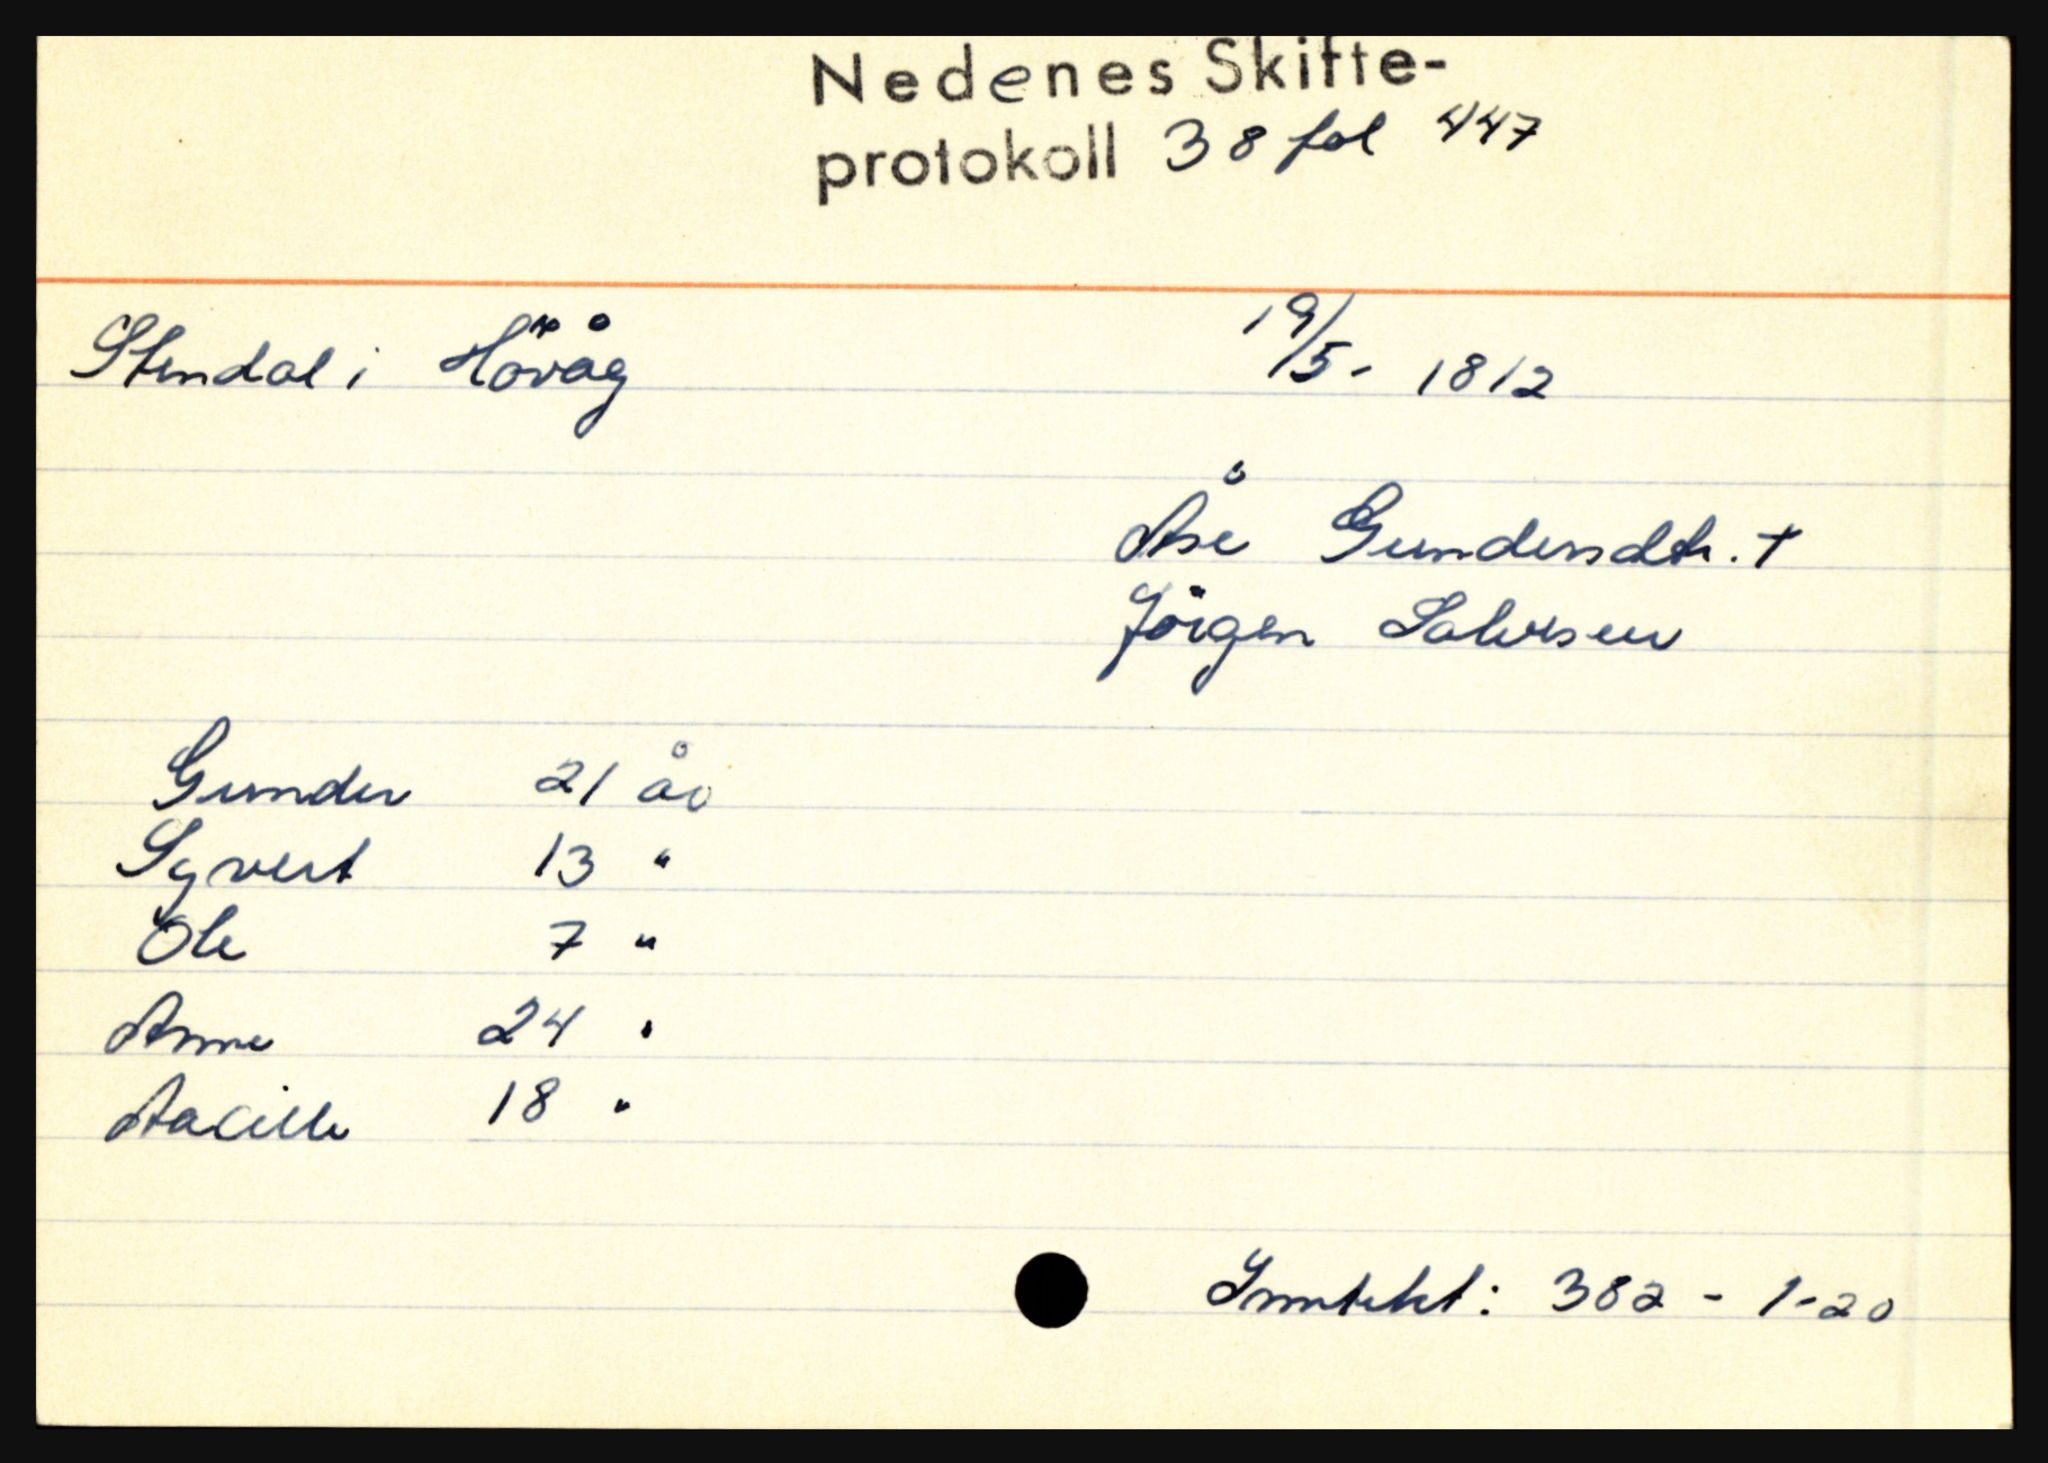 Nedenes Skifte-
protokoll 38 fol 447
Stendal i Höväg 19/5 - 1812
Åse Gundersdtr. †
Jörgen Salvesen
Gunder 21 år
Syvert 13 "
Ole 7 "
Anne 24 "
Aacille 18 "
Inntekt: 382 - 1 - 20